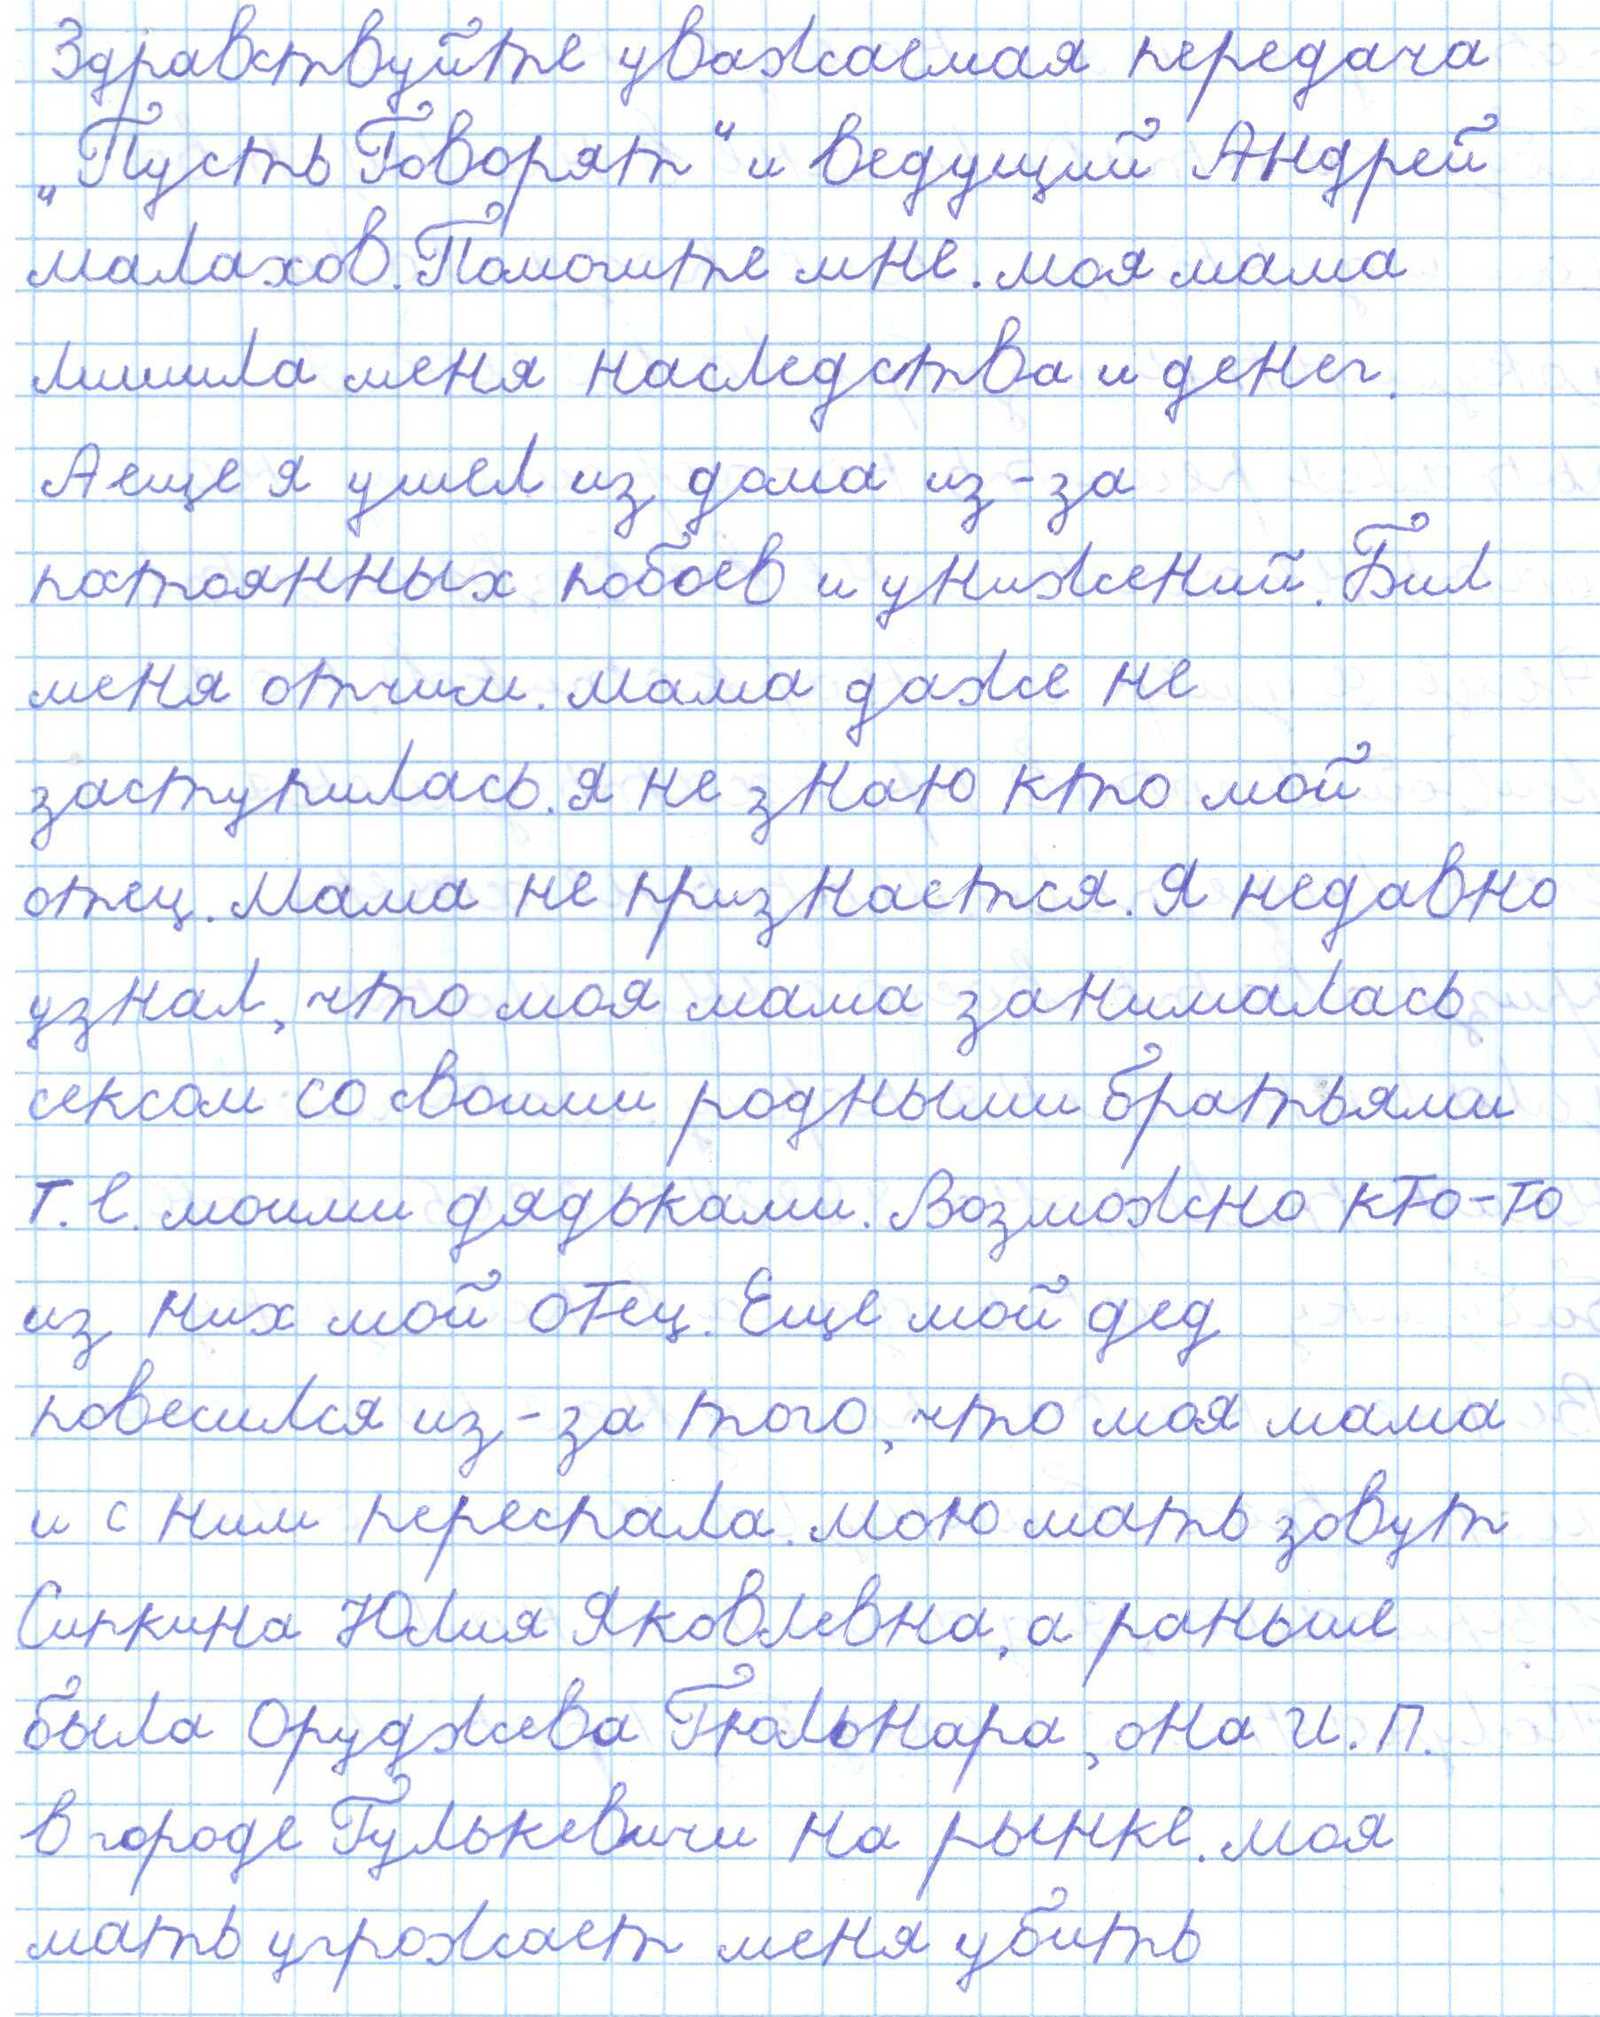 Здравствуйте уважаемая передача
„Пусть Говорят“ и ведущий Андрей
малахов. Помогите мне. моя мама
лишила меня наследства и денег.
А еще я ушел из дома из-за
постоянных побоев и унижений. Бил
меня отчим. мама даже не
заступилась. я не знаю кто мой
отец. Мама не признается. Я недавно
узнал, что моя мама занималась
сексом со своими родными братьями
т.е. моими дядьками. Возможно кто-то
из них мой отец. Еще мой дед
повесился из-за того, что моя мама
и с ним переспала. Мою мать зовут
Сипкина Юлия Яковлевна, а раньше
была Оруджева Гюльнара, она И.П.
в городе Гулькевичи на рынке. моя
мать угрожает меня убить